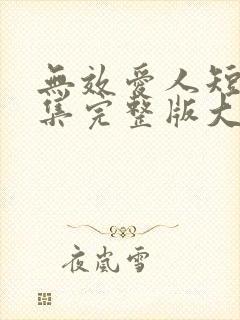 無效愛人短
集完整版大
夜嵐雪